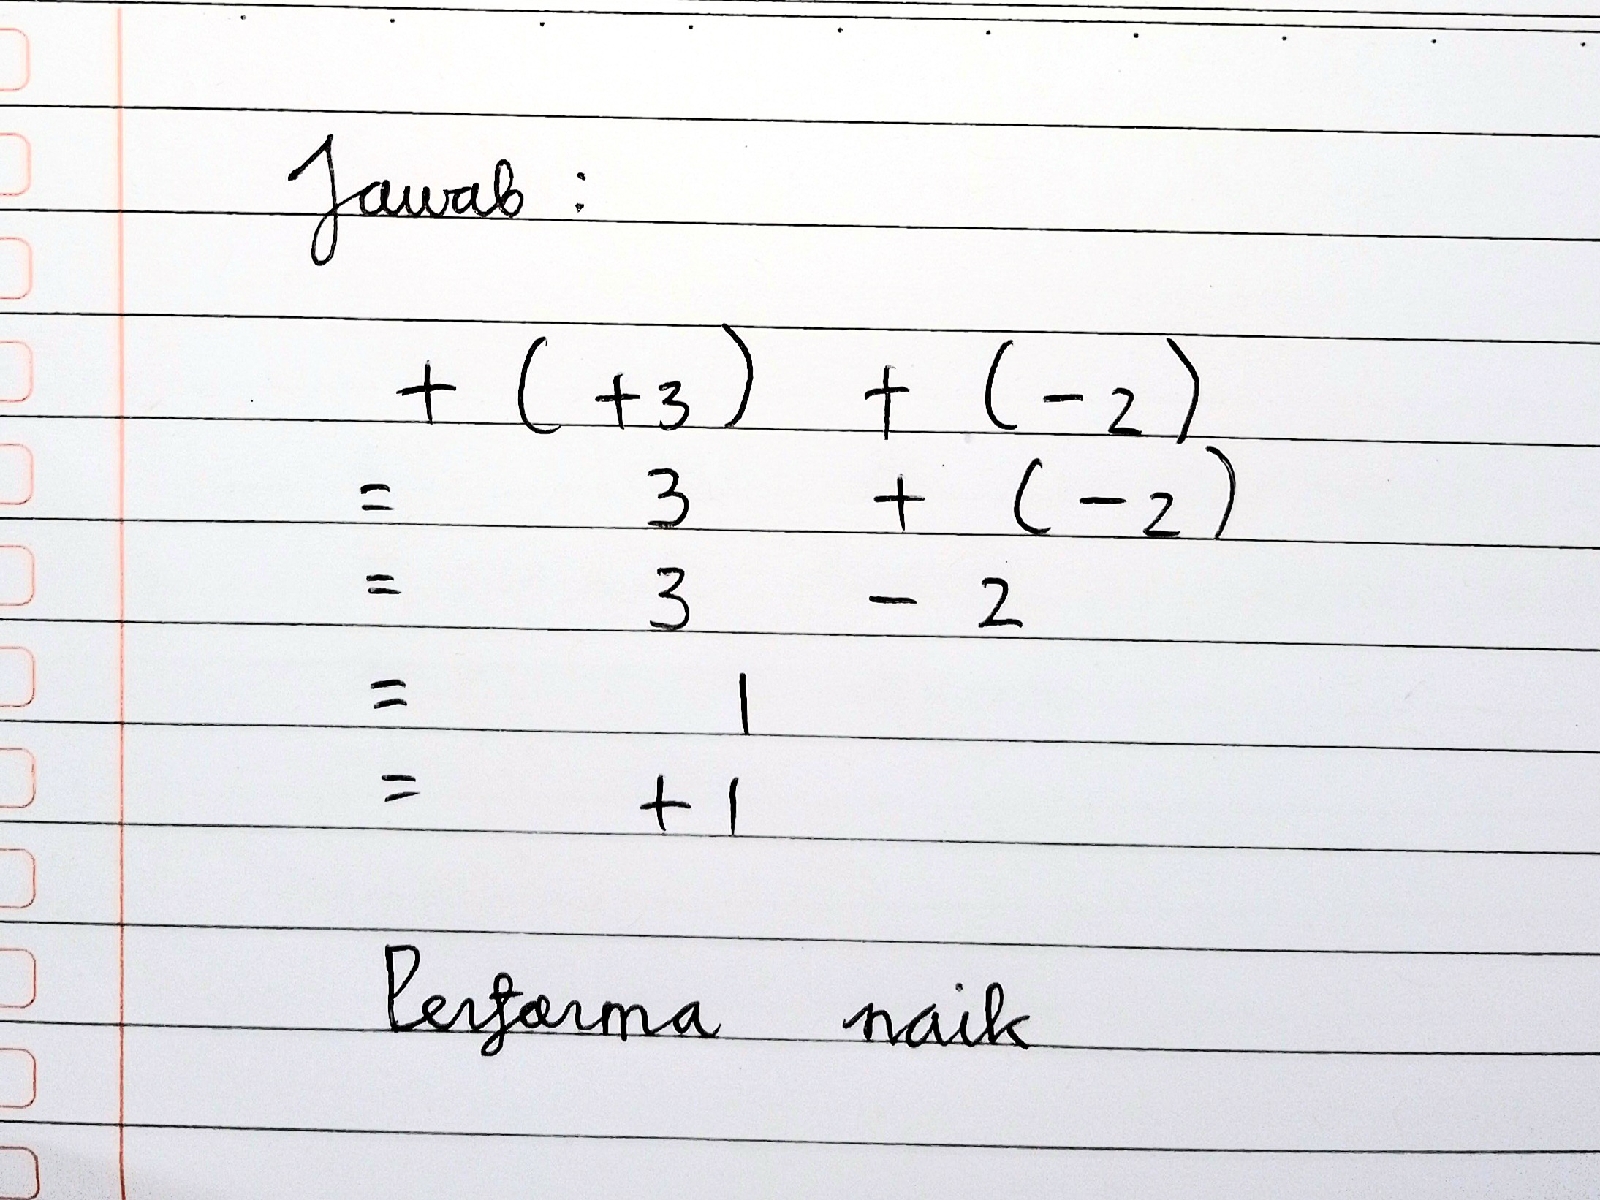 Jawab :
+ ( +3 ) + ( -2 )
= 3 + ( -2 )
= 3 - 2
= 1
= +1
Performa naik